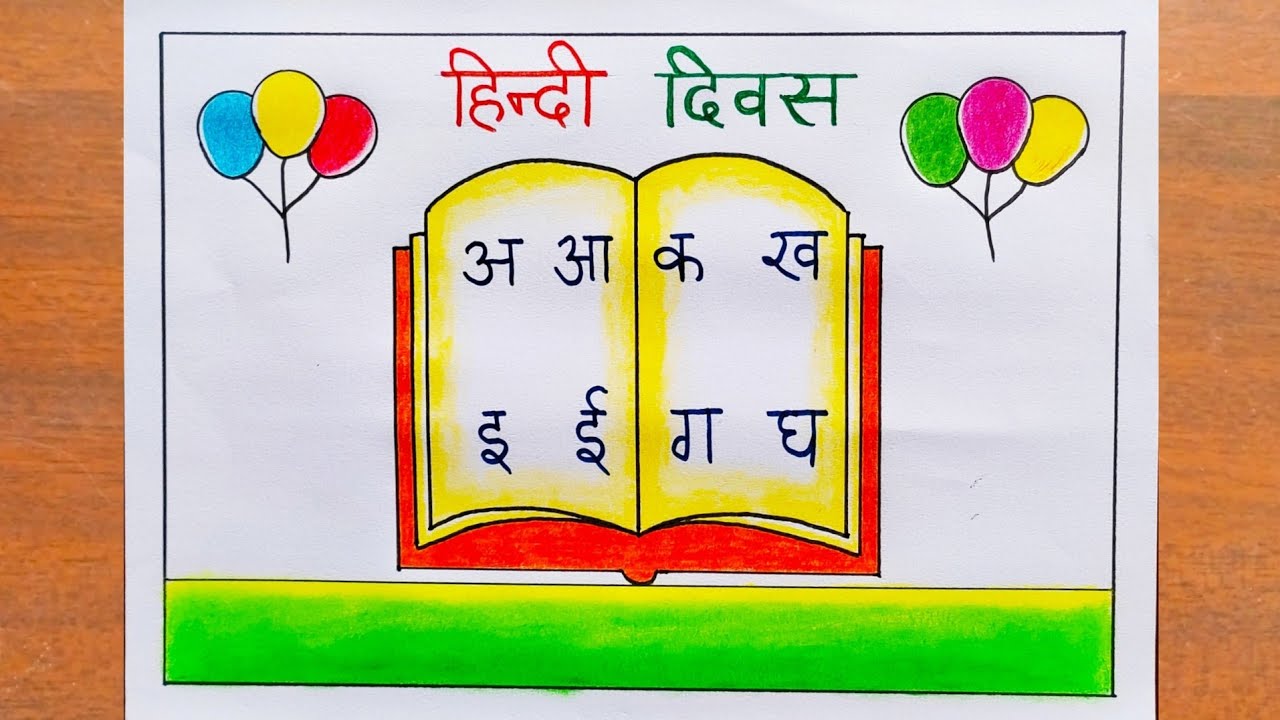 हिन्दी दिवस
अ आ क ख
इ ई ग घ